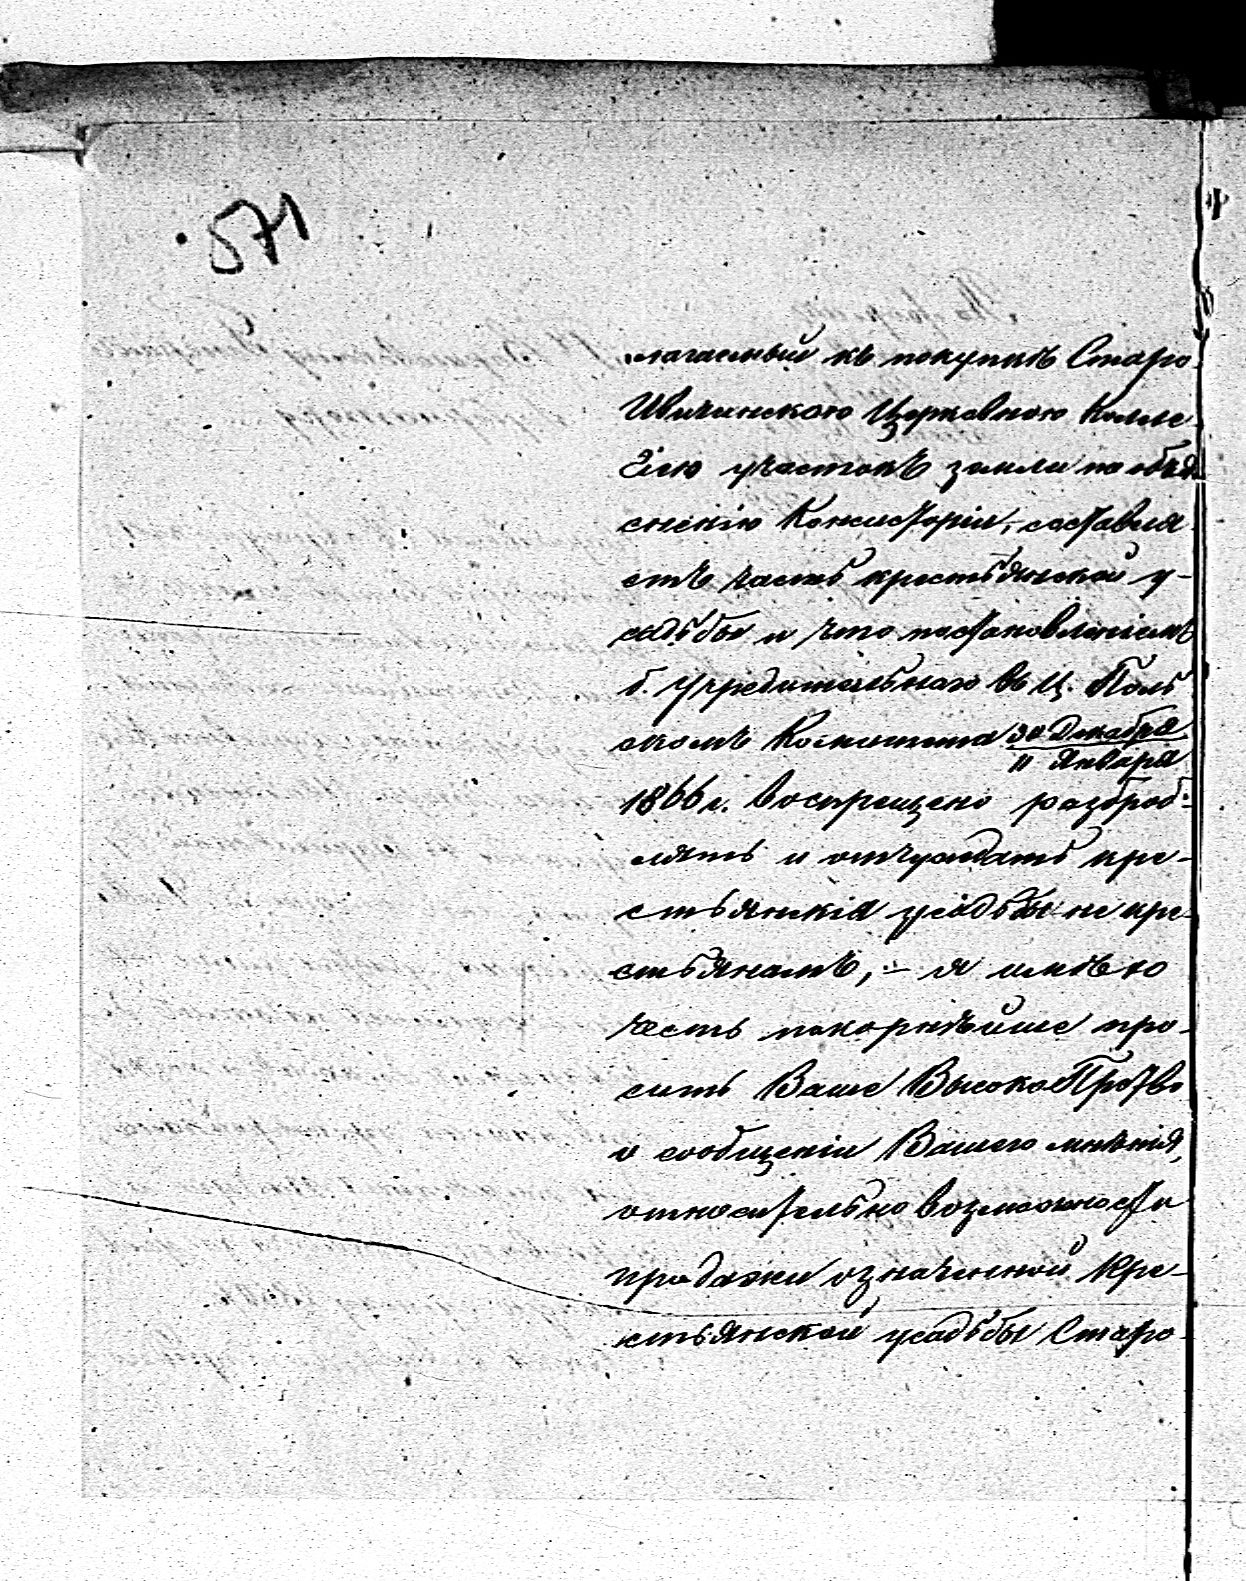 571
лагаемый къ покупкѣ Старо-
Ивичинскою Церковною Колле-
гіею участокъ земли по объя-
сненію Консисторіи, составля-
етъ часть крестьянской у-
садьбы и что постановленіемъ
б. Учредительнаго въ Ц. Поль
скомъ Комитета 30 Декабря
11 Января
1866 г. воспрещено раздроб-
лять и отчуждать кре-
стьянскія усадьбы не кре-
стьянамъ, – я имѣю
честь покорнѣйше про-
сить Ваше ВысокоПр-тво
о сообщеніи Вашего мнѣнія,
относительно возможности
продажи означенной Кре-
стьянской усадьбы Старо-